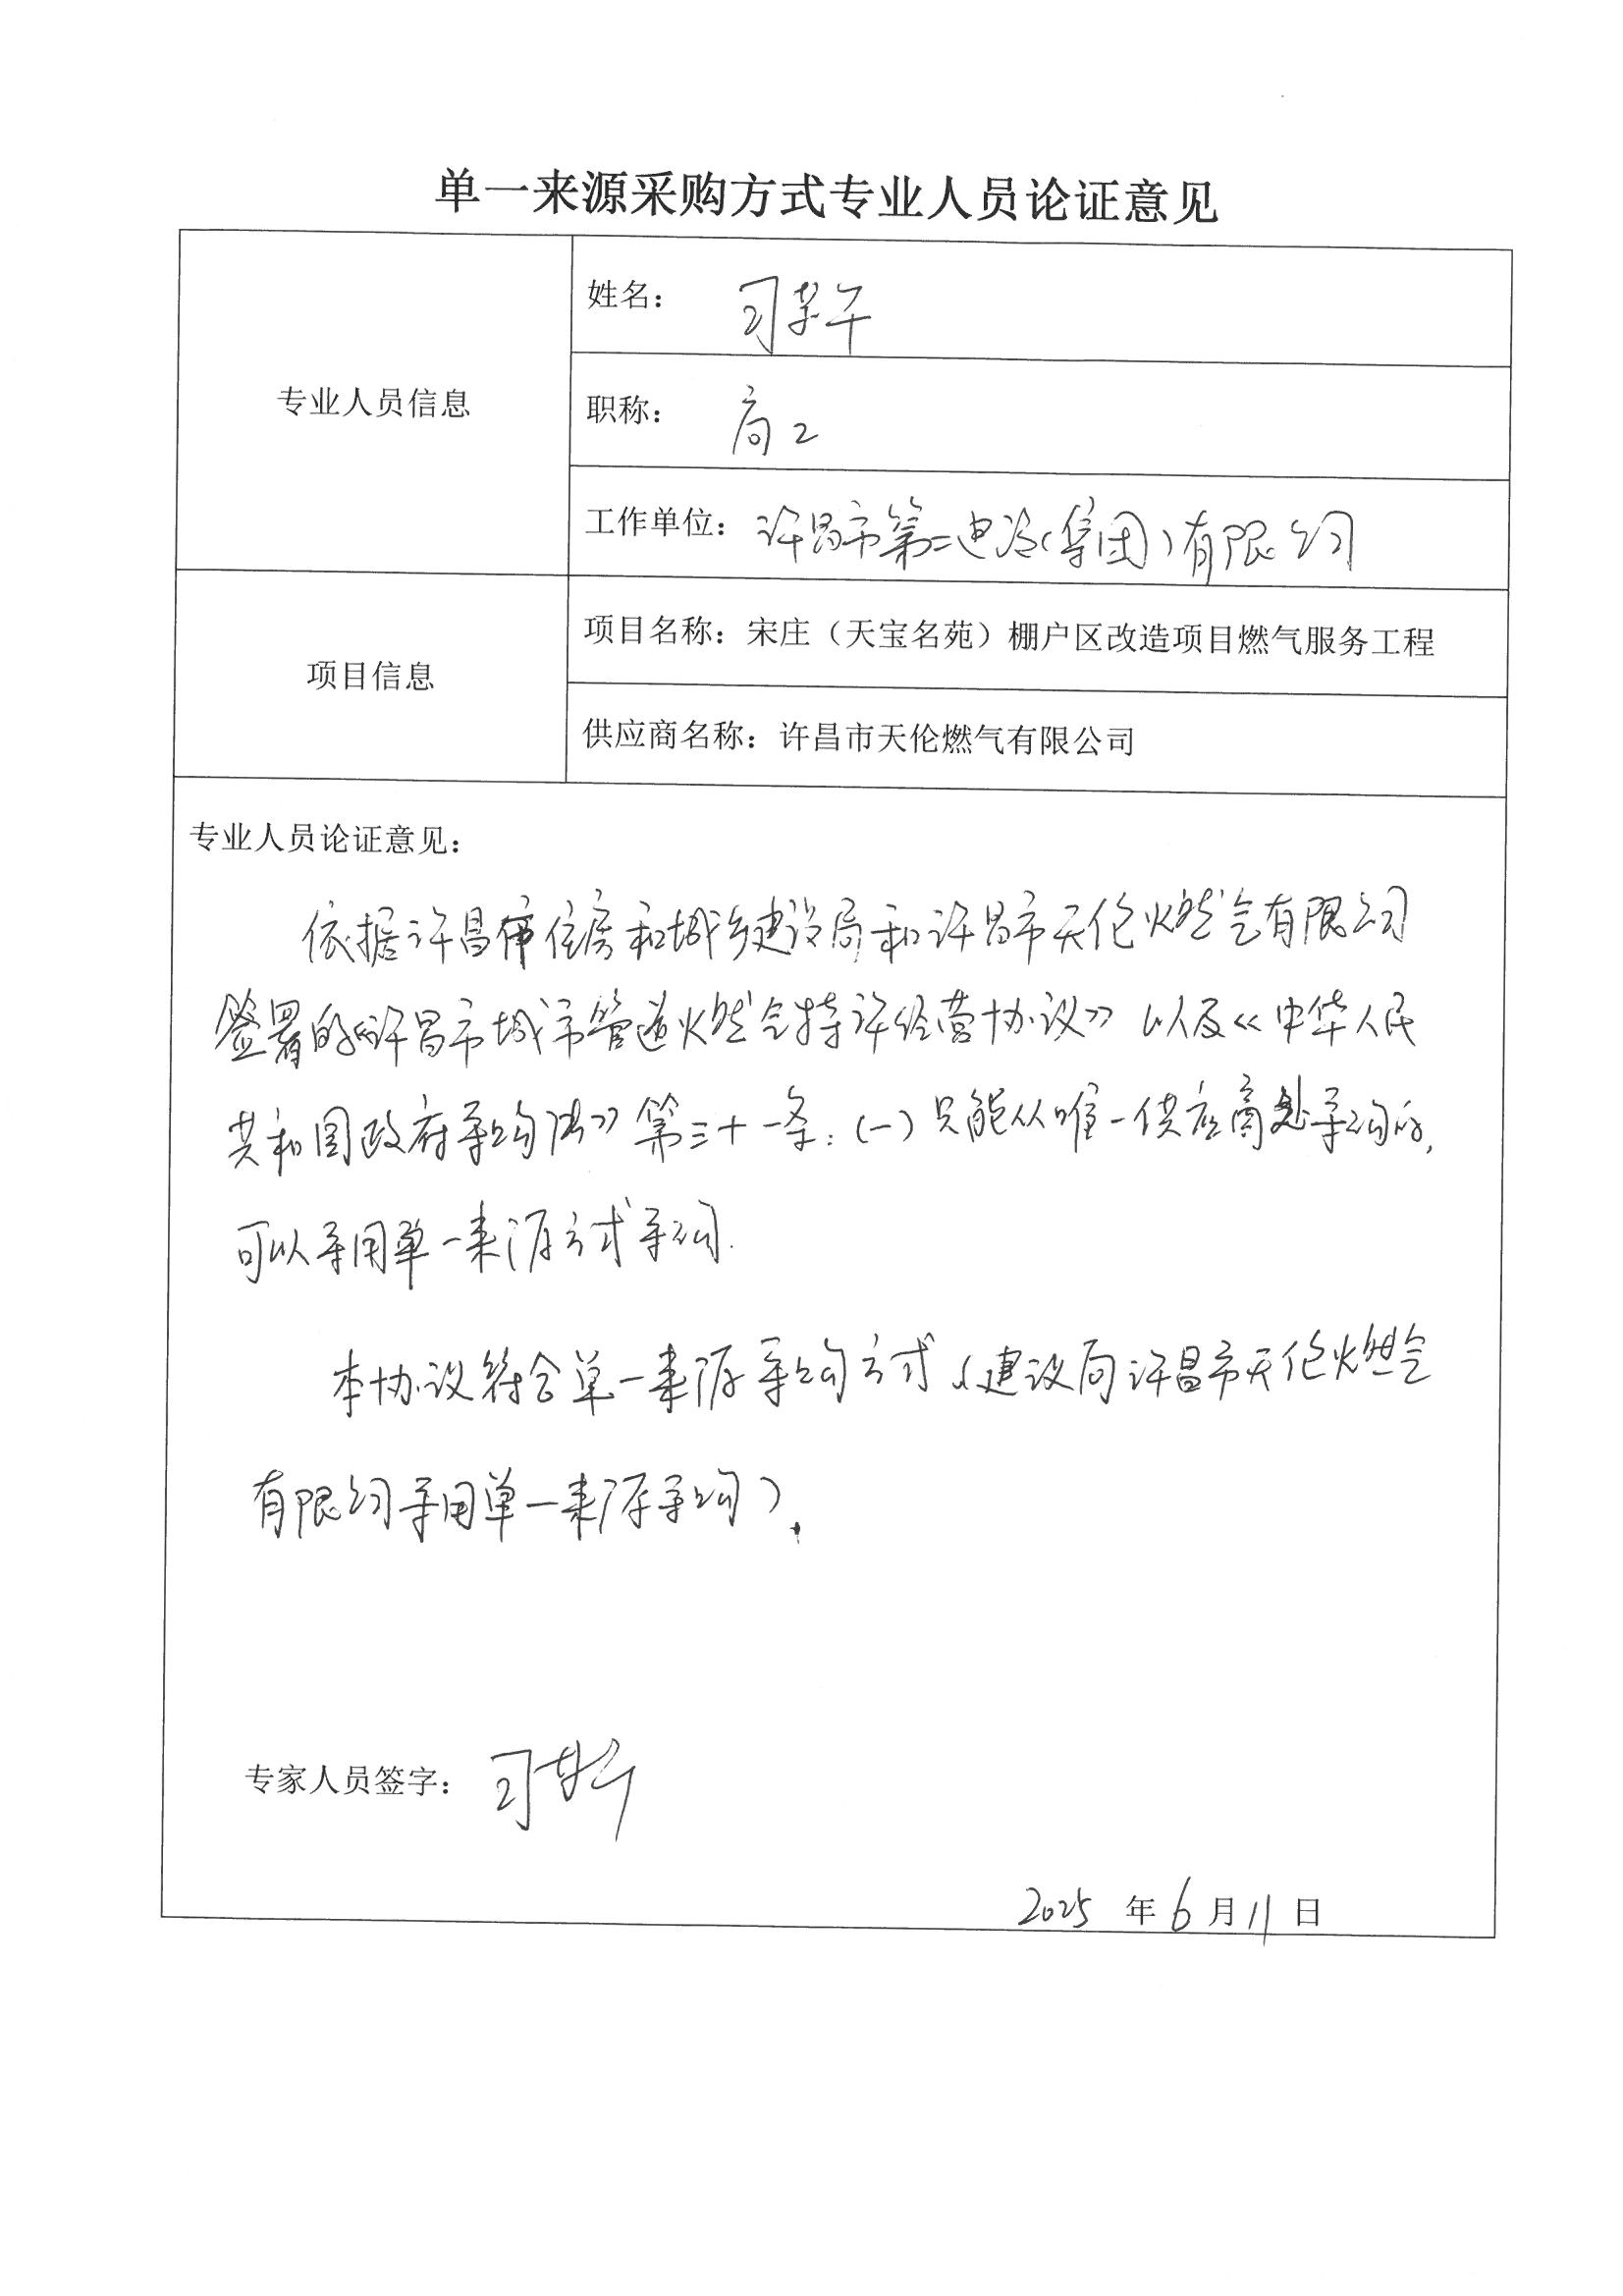 单一来源采购方式专业人员论证意见
专业人员信息
姓名：司
职称：高工
工作单位：许昌市第二建（集团）有限公司
项目信息
项目名称：宋庄（天宝名苑）棚户区改造项目燃气服务工程
供应商名称：许昌市天伦燃气有限公司
专业人员论证意见：
依据许昌市住房和城乡建设局和许昌市天伦燃气有限公司
签署的《许昌市城市管道燃气特许经营协议》以及《中华人民
共和国政府采购法》第三十一条：(一)只能从唯一供应商处采购的，
可以采用单一来源方式采购.
本协议符合单一来源采购方式（建议向许昌市天伦燃气
有限公司采用单一来源采购）.
专家人员签字：司
2025 年 6 月 11 日